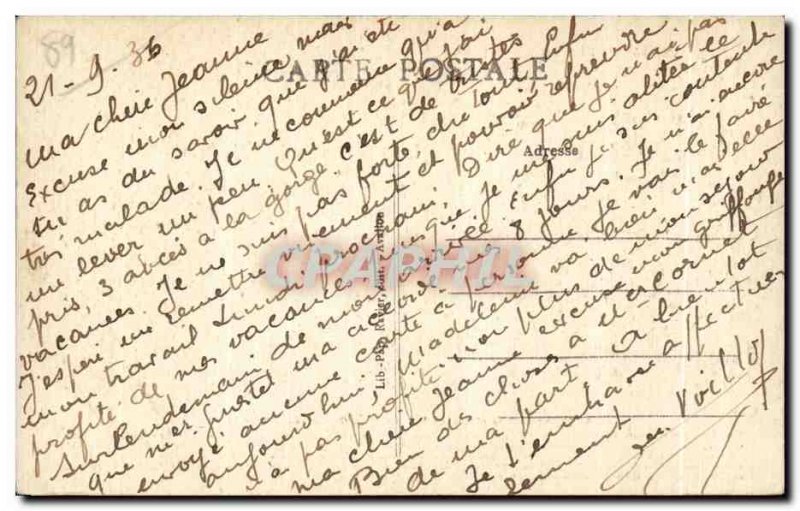 89
21-9.36
CARTE POSTALE
Adresse
Lib.-Pap. Avallon
CPAPHIL
Ma chère Jeanne
Excuse mon silence mais
tu as du savoir que j'ai été
très malade. Je recommence qu'à
me lever un peu. Qu'est ce que j'ai
pris, 3 abcès à la gorge c'est de tristes
vacances. Je ne suis pas forte du tout. Enfin
j'espère me remettre vivement et pouvoir reprendre
mon travail Lundi prochain. Dire que je n'ai pas
profité de mes vacances puisque je me suis alitée le
surlendemain de mon arrivée. Enfin je suis contente
que n'ai 8 jours. Je n'ai encore
envoyé aucune carte à personne. Je vais le faire
aujourd'hui. Madeleine va bien mais elle
n'a pas profité non plus de mon séjour
ma chère Jeanne excuse mon griffonnage
Bien des choses à Mr Cornet
de ma part. A bientôt
Je t'embrasse affectueu
sement